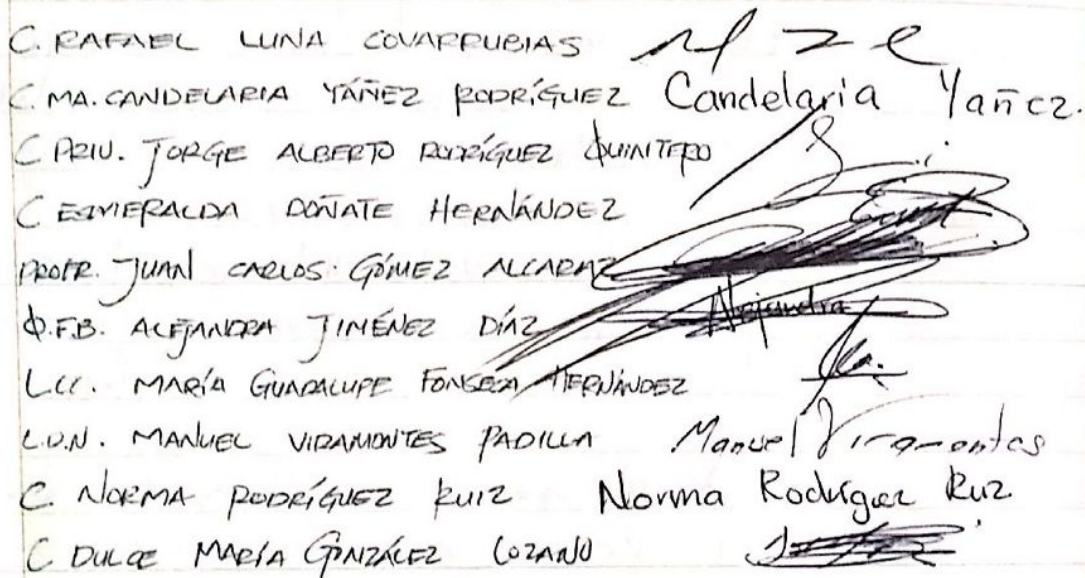 C. RAFAEL LUNA COVARRUBIAS
C. MA. CANDELARIA YÁÑEZ RODRÍGUEZ Candelaria Yañez.
C. PRIV. JORGE ALBERTO RODRÍGUEZ QUINTERO
C. ESMERALDA DOÑATE HERNÁNDEZ
PROFR. JUAN CARLOS GÓMEZ ALCARAZ
Q.F.B. ALEJANDRA JIMÉNEZ DÍAZ Alejandra
LIC. MARÍA GUADALUPE FONSECA HERNÁNDEZ
L.O.N. MANUEL VIRAMONTES PADILLA Manuel Viramontes
C. NORMA RODRÍGUEZ RUIZ Norma Rodríguez Ruz
C. DULCE MARÍA GONZÁLEZ LOZANO